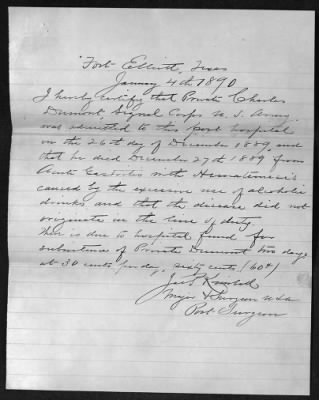 Fort Elliott, Texas
January 4th 1890
I hereby certify that Private Charles
Dumont, Signal Corps U. S. Army
was admitted to this post hospital
on the 26th day of December 1889, and
that he died December 27th 1889 from
Acute Gastritis with Hematemesis
caused by the excessive use of alcoholic
drinks and that the disease did not
originate in the line of duty
There is due to hospital fund for
subsistence of Private Dumont two days
at 30 cents per day, sixty cents (60¢)
Jas. P. Kimball
Major & Surgeon U.S.A.
Post Surgeon